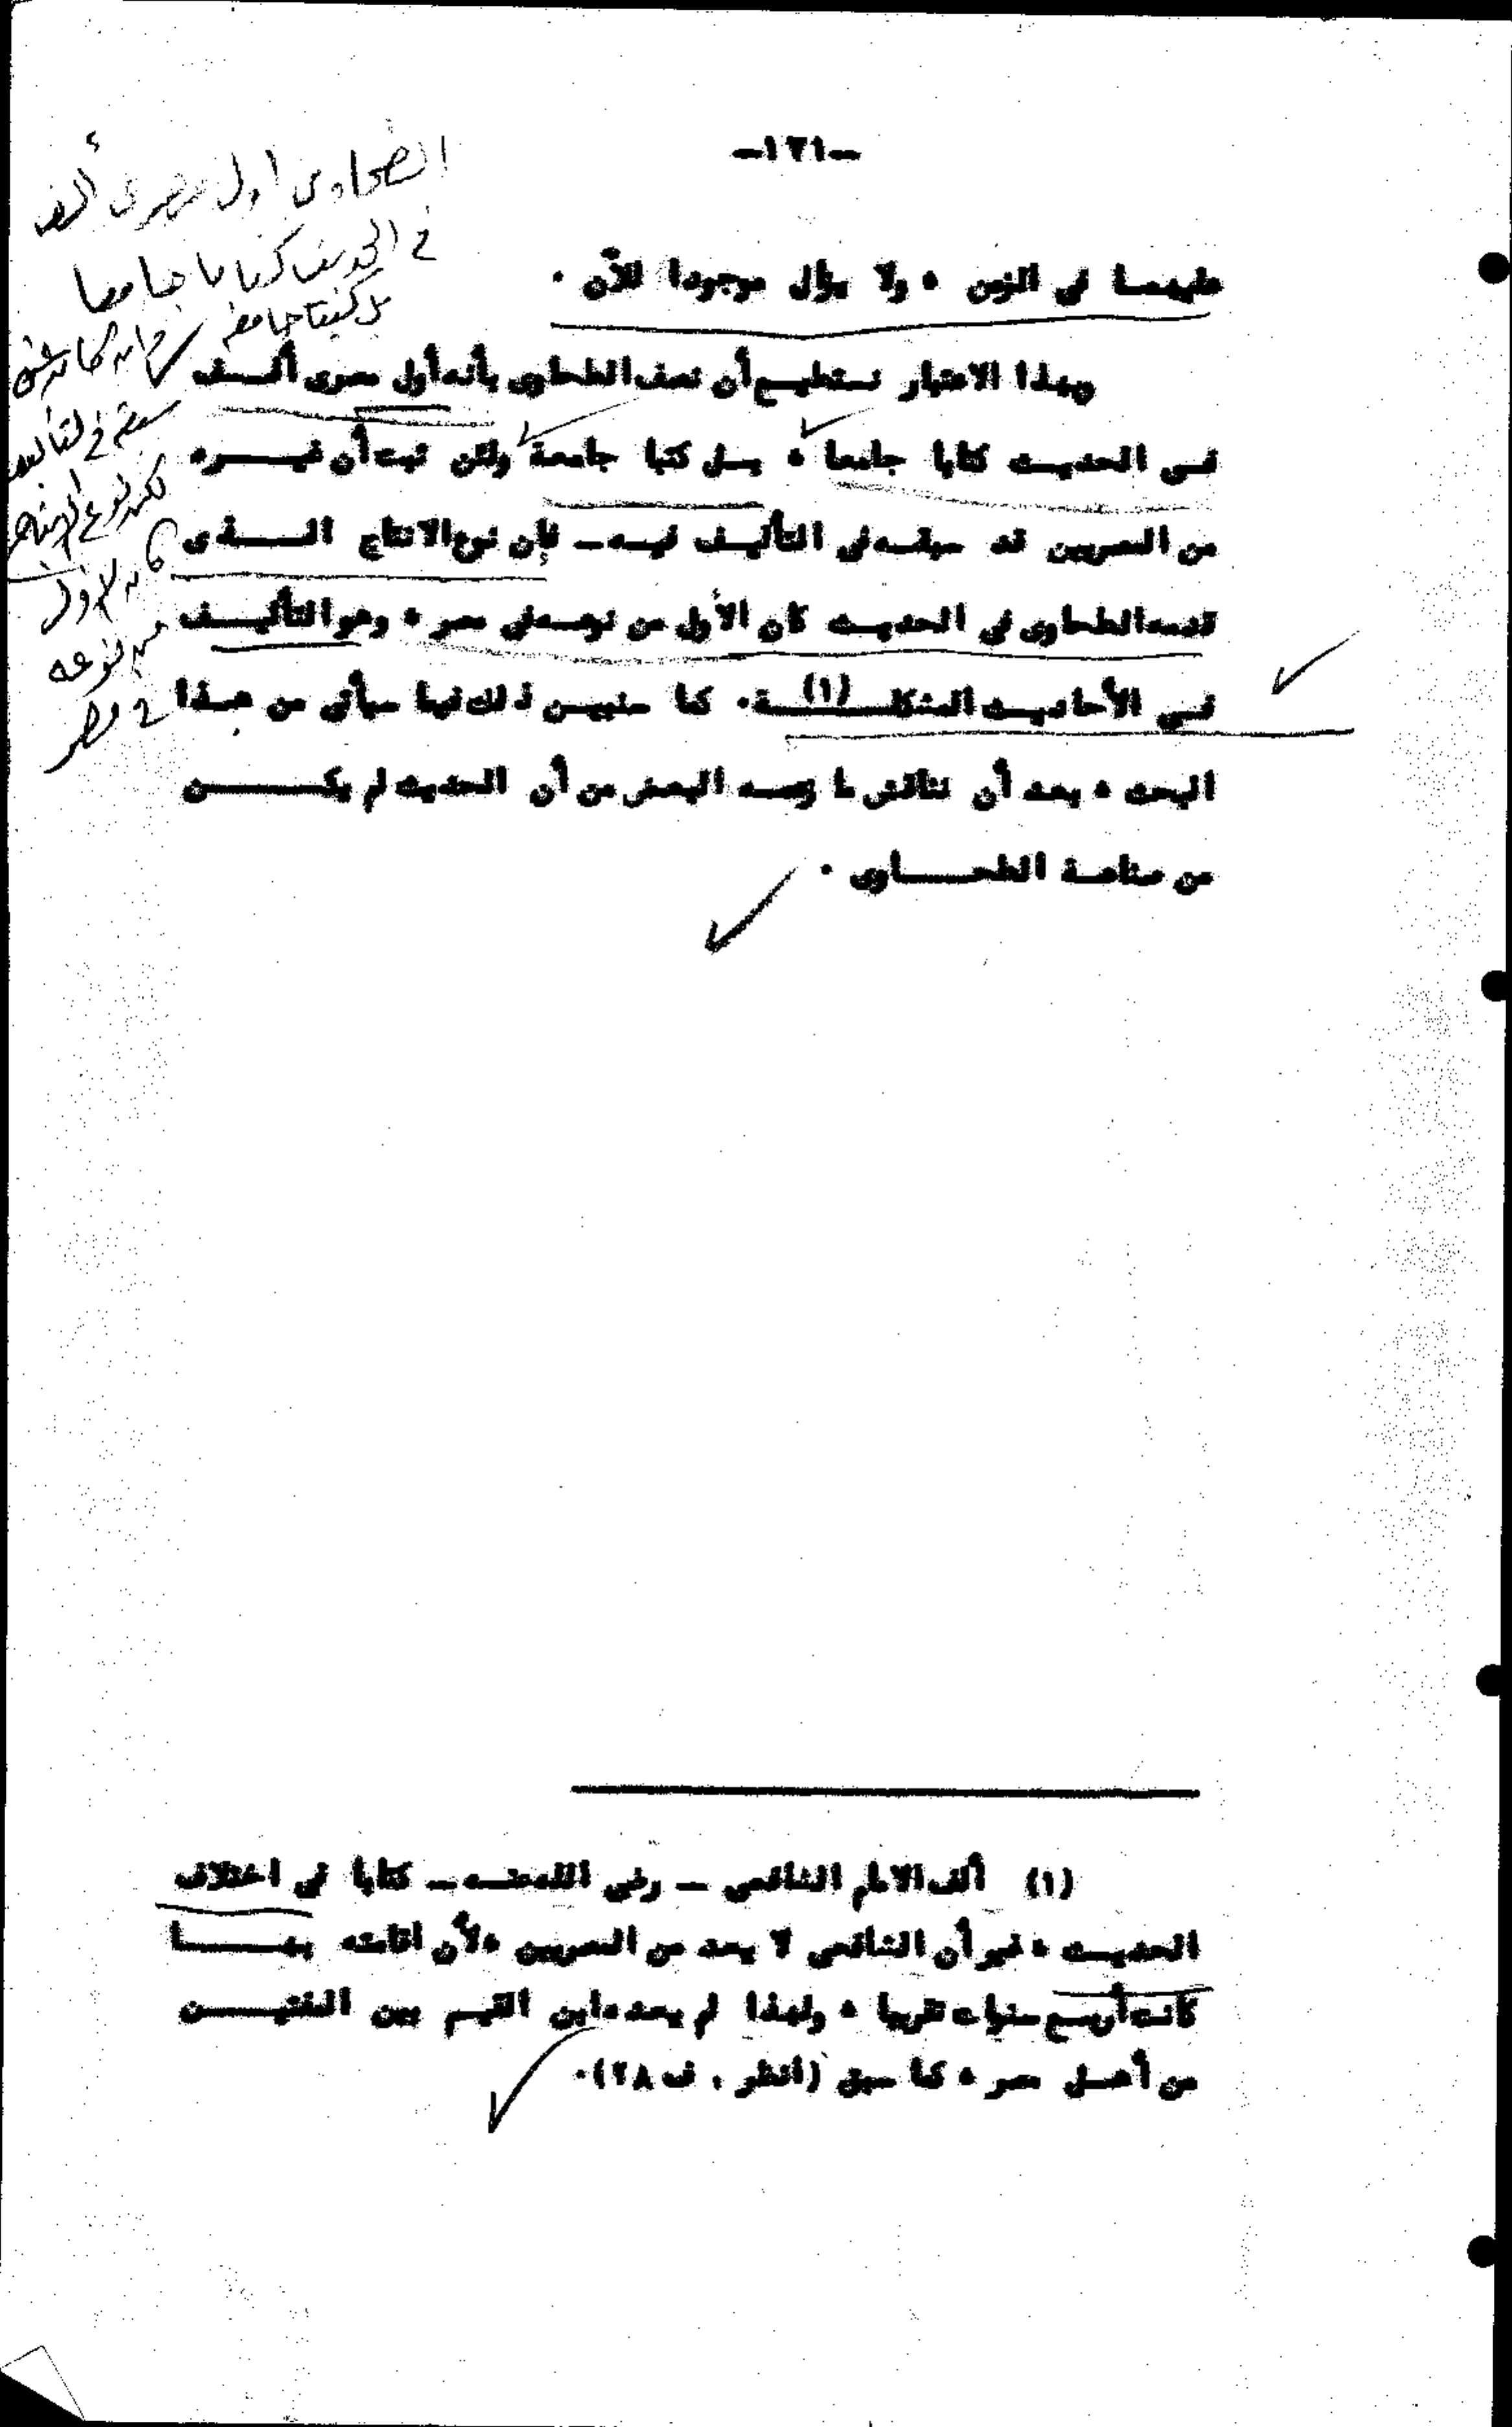 -١٢١-
عليهما في الزمن ، ولا يزال موجودا للآن .
وبهذا الاعتبار نستطيع أن نصف الطحاوى بأنه أول مصرى ألف
في الحديث كتابا جامعا ، بل كتبا جامعة ولئن ثبت أن غيره
من المصريين قد سبقه في التأليف فيه - فإن نوع الانتاج الذى
قدمه الطحاوى في الحديث كان الأول من نوعه في مصر ، وهو التأليف
في الأحاديث المشكلة (١) . كما سنبين ذلك فيما سيأتى من هذا
البحث ، بعد أن نناقش ما زعمه البعض من أن الحديث لم يكن
من صناعة الطحاوى .
(١) ألف الامام الشافعى - رضى الله عنه - كتابا في اختلاف
الحديث ، غير أن الشافعى لا يعد من المصريين ، لأن اقامته بها
كانت أربع سنوات تقريبا ، ولهذا لم يعده ابن القيم بين المفتين
من أهل مصر ، كما سبق (انظر . ف ٢٨) .
الطحاوى اول مصرى ألف
في الحديث كتابا جامعا
بل كتبا جامعة
سبقه في التأليف
كان الأول
من نوعه
في مصر